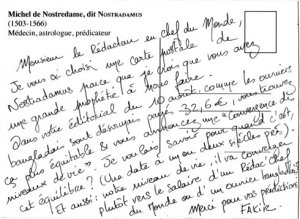 Michel de Nostredame, dit NOSTRADAMUS
(1503-1566)
Médecin, astrologue, prédicateur
Monsieur le Rédacteur en chef du Monde,
Je vous ai choisi une carte postale de
Nostradamus parce que je crois que vous avez
une grande propriété à nous faire.
Dans votre éditorial du 10 août, comme les ouvriers
bangladais sont désormais payés 32,6 €, vous trouvez
ça plus équitable & vous annoncez une "convergence des
niveaux de vie". Je voulais savoir pour quand c'est,
cet équilibre ? (Une date à un ou deux siècles près).
Et aussi : notre niveau de vie, il va converger
plutôt vers le salaire d'un Rédac' chef
du Monde ou d'un ouvrier bangladais ?
Merci pour vos prédictions
FAKIR.